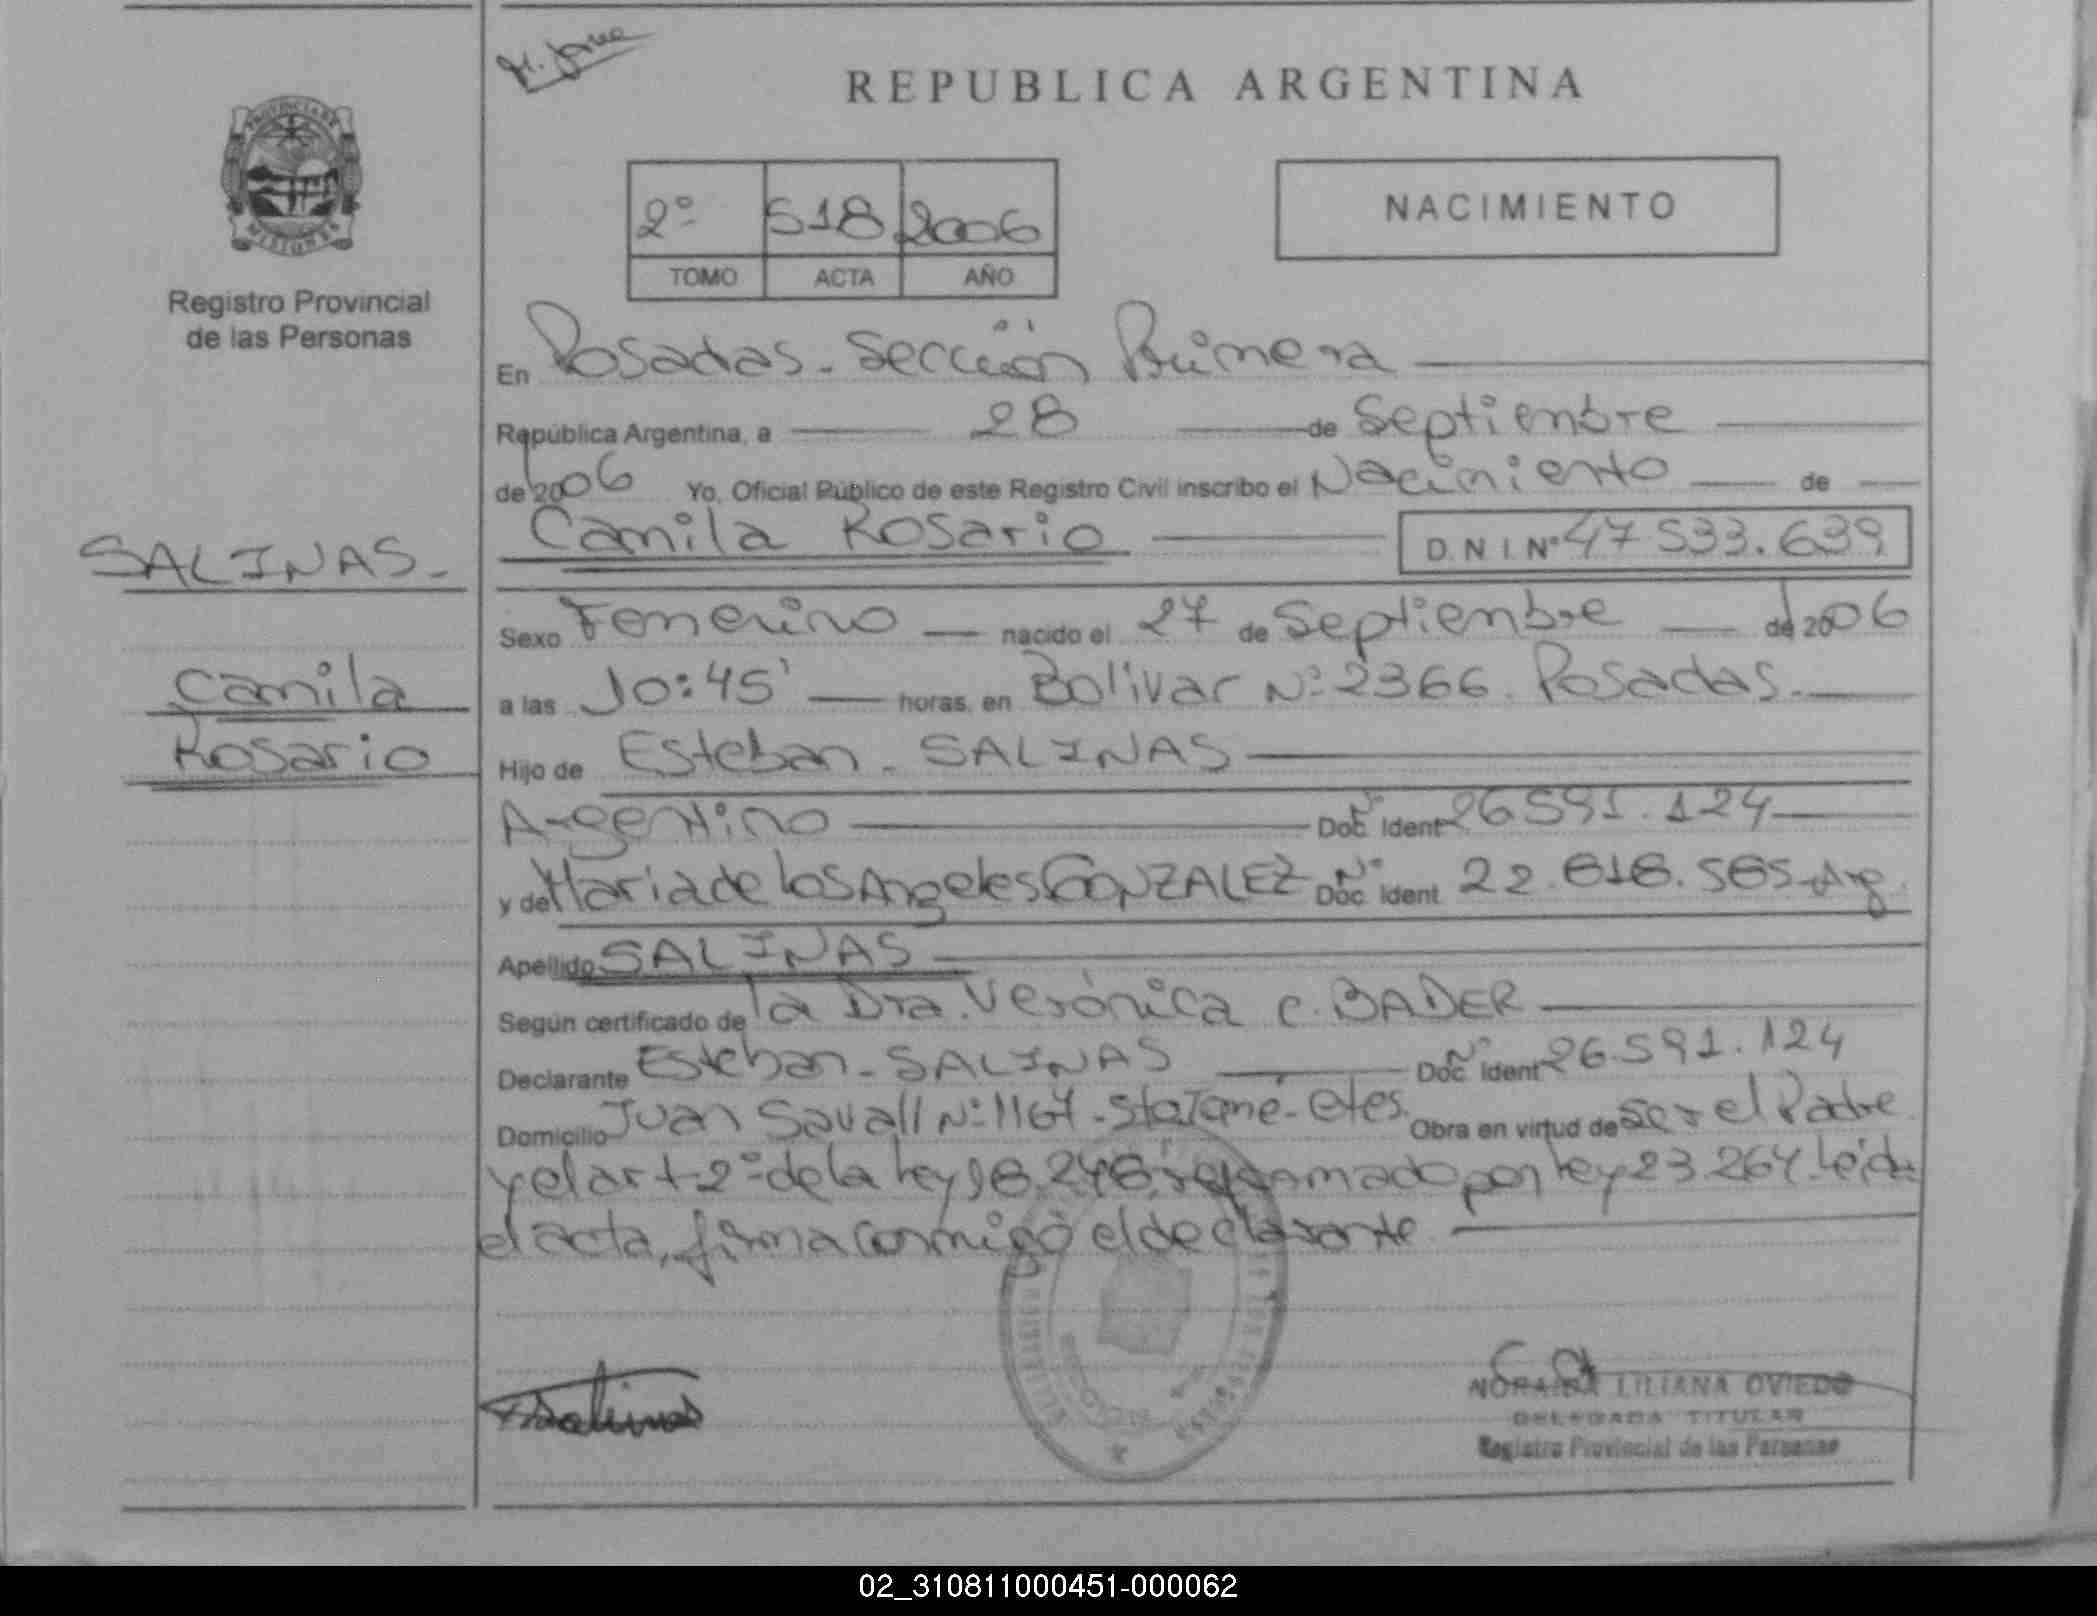 REPUBLICA ARGENTINA
PROVINCIA DE
MISIONES
Registro Provincial
de las Personas
2º 518 2006
TOMO ACTA AÑO
NACIMIENTO
En Posadas - Sección Primera
República Argentina, a 28 de Septiembre
de 2006 Yo, Oficial Público de este Registro Civil inscribo el Nacimiento de
Camila Rosario D.N.I. Nº 47.533.639
SALINAS
Camila
Rosario
Sexo Femenino nacido el 27 de Septiembre de 2006
a las 10:45' horas, en Bolivar Nº 2366. Posadas.
Hijo de Esteban - SALINAS
Argentino Nº Doc. Ident 26.591.124
y de Maria de los Angeles GONZALEZ Nº Doc. Ident. 22.818.585-Arg.
Apellido SALINAS
Según certificado de la Dra. Verónica C. BADER
Declarante Esteban - SALINAS Nº Doc. Ident 26.591.124
Domicilio Juan Savall Nº 1167 - Obra en virtud de ser el Padre
y el art 2º de la Ley 18.248, reformado por Ley 23.264. Leída
el acta, firma conmigo el declarante.
Salinas
NORAIDA LILIANA OVIEDO
DELEGADA TITULAR
Registro Provincial de las Personas
02_310811000451-000062